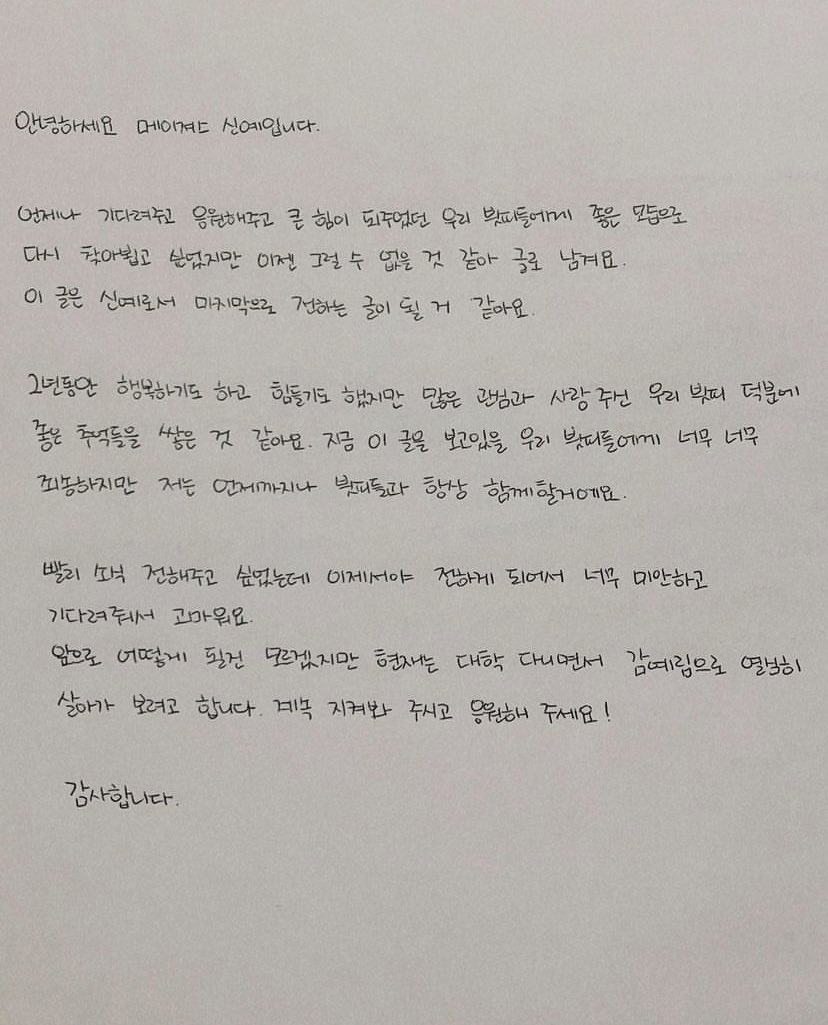 안녕하세요 메이져스 신예입니다.
언제나 기다려주고 응원해주고 큰 힘이 되주었던 우리 밧찌들에게 좋은 모습으로
다시 찾아뵙고 싶었지만 이젠 그럴 수 없을 것 같아 글로 남겨요.
이 글은 신예로서 마지막으로 전하는 글이 될 거 같아요.
2년동안 행복하기도 하고 힘들기도 했지만 많은 관심과 사랑 주신 우리 밧찌 덕분에
좋은 추억들을 쌓은 것 같아요. 지금 이 글을 보고있을 우리 밧찌들에게 너무 너무
죄송하지만 저는 언제까지나 밧찌들과 항상 함께할거에요.
빨리 소식 전해주고 싶었는데 이제서야 전하게 되어서 너무 미안하고
기다려줘서 고마워요.
앞으로 어떻게 될건 모르겠지만 현재는 대학 다니면서 감예림으로 열심히
살아가 보려고 합니다. 계속 지켜봐 주시고 응원해 주세요!
감사합니다.